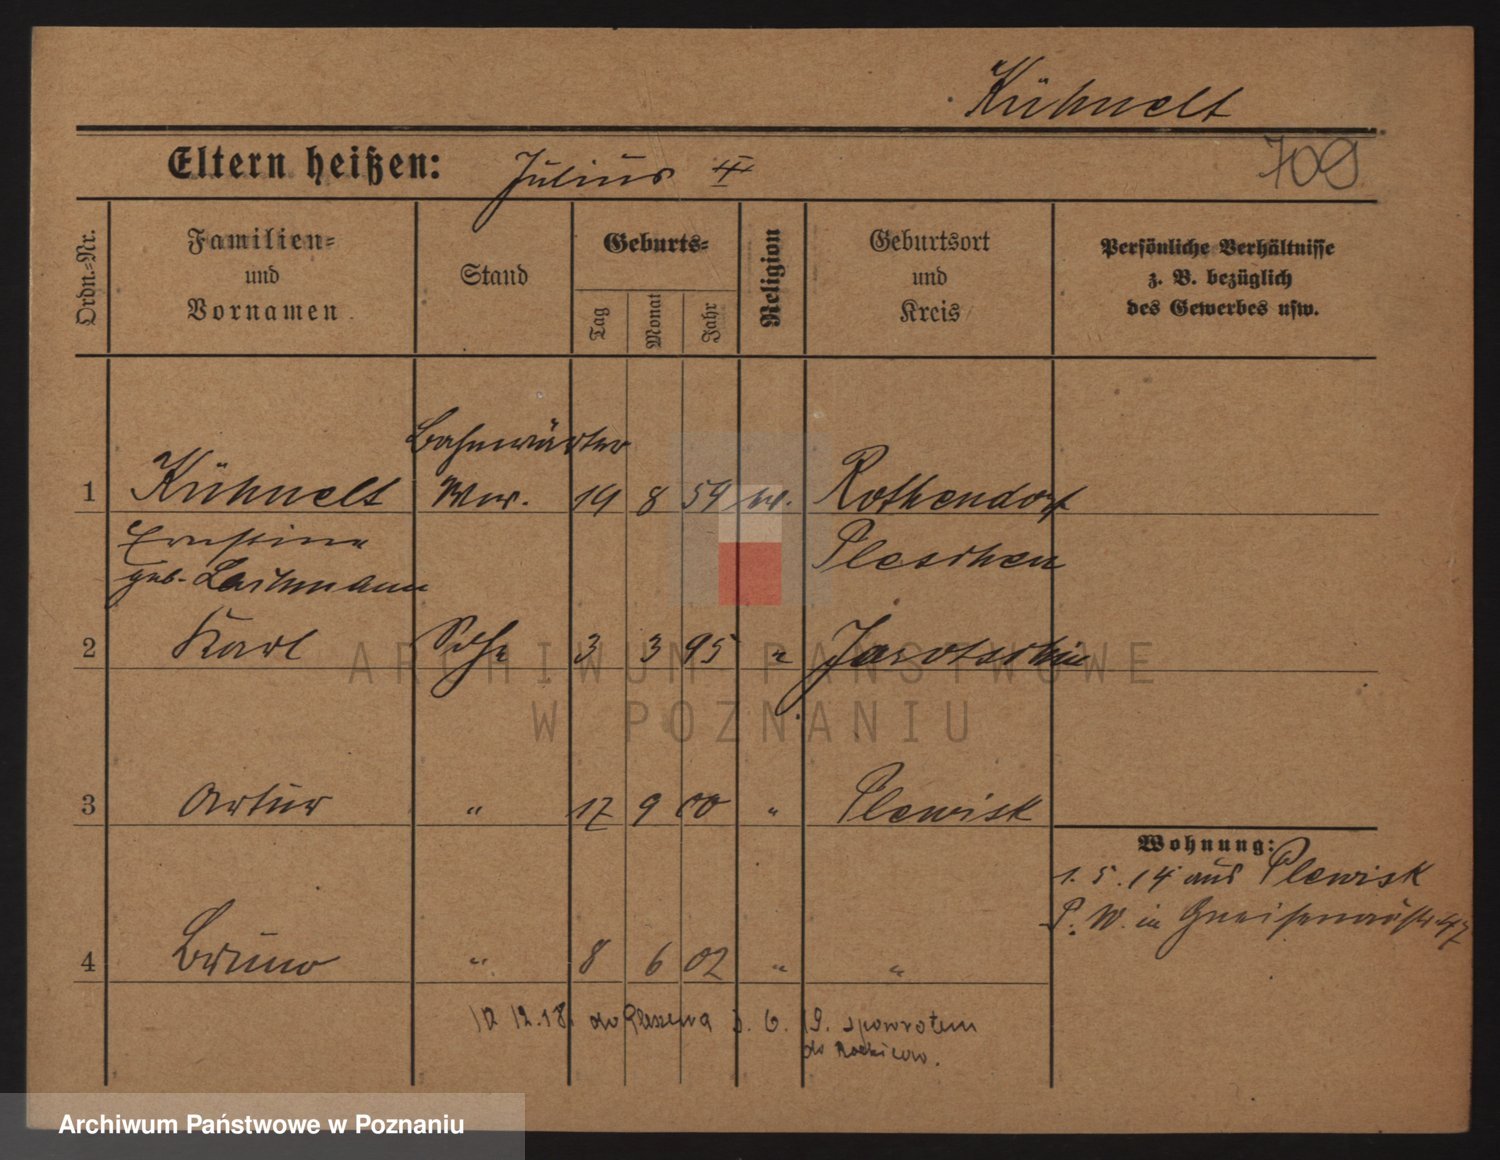 Kühnelt
Eltern heißen: Julius II
709
Ordn.=Nr.
Familien=
und
Vornamen
Stand
Geburts=
Tag
Monat
Jahr
Religion
Geburtsort
und
Kreis
Persönliche Verhältnisse
z. B. bezüglich
des Gewerbes usw.
Bahnwärter
1 Kühnelt Wwe. 19 8 59 ev. Rothendorf
Ernstine Pleschen
geb. Lachmann
2 Karl Sohn 3 3 95 " Jarotschin
3 Artur " 17 9 00 " Plewisk
Wohnung:
1. 5. 14 aus Plewisk
P. W. in Gneisenaustr. 47
4 Bruno " 8 6 02 " "
12 12.18. do Pleszewa 3. 6. 19. spowrotem
do
ARCHIWUM PAŃSTWOWE
W POZNANIU
Archiwum Państwowe w Poznaniu